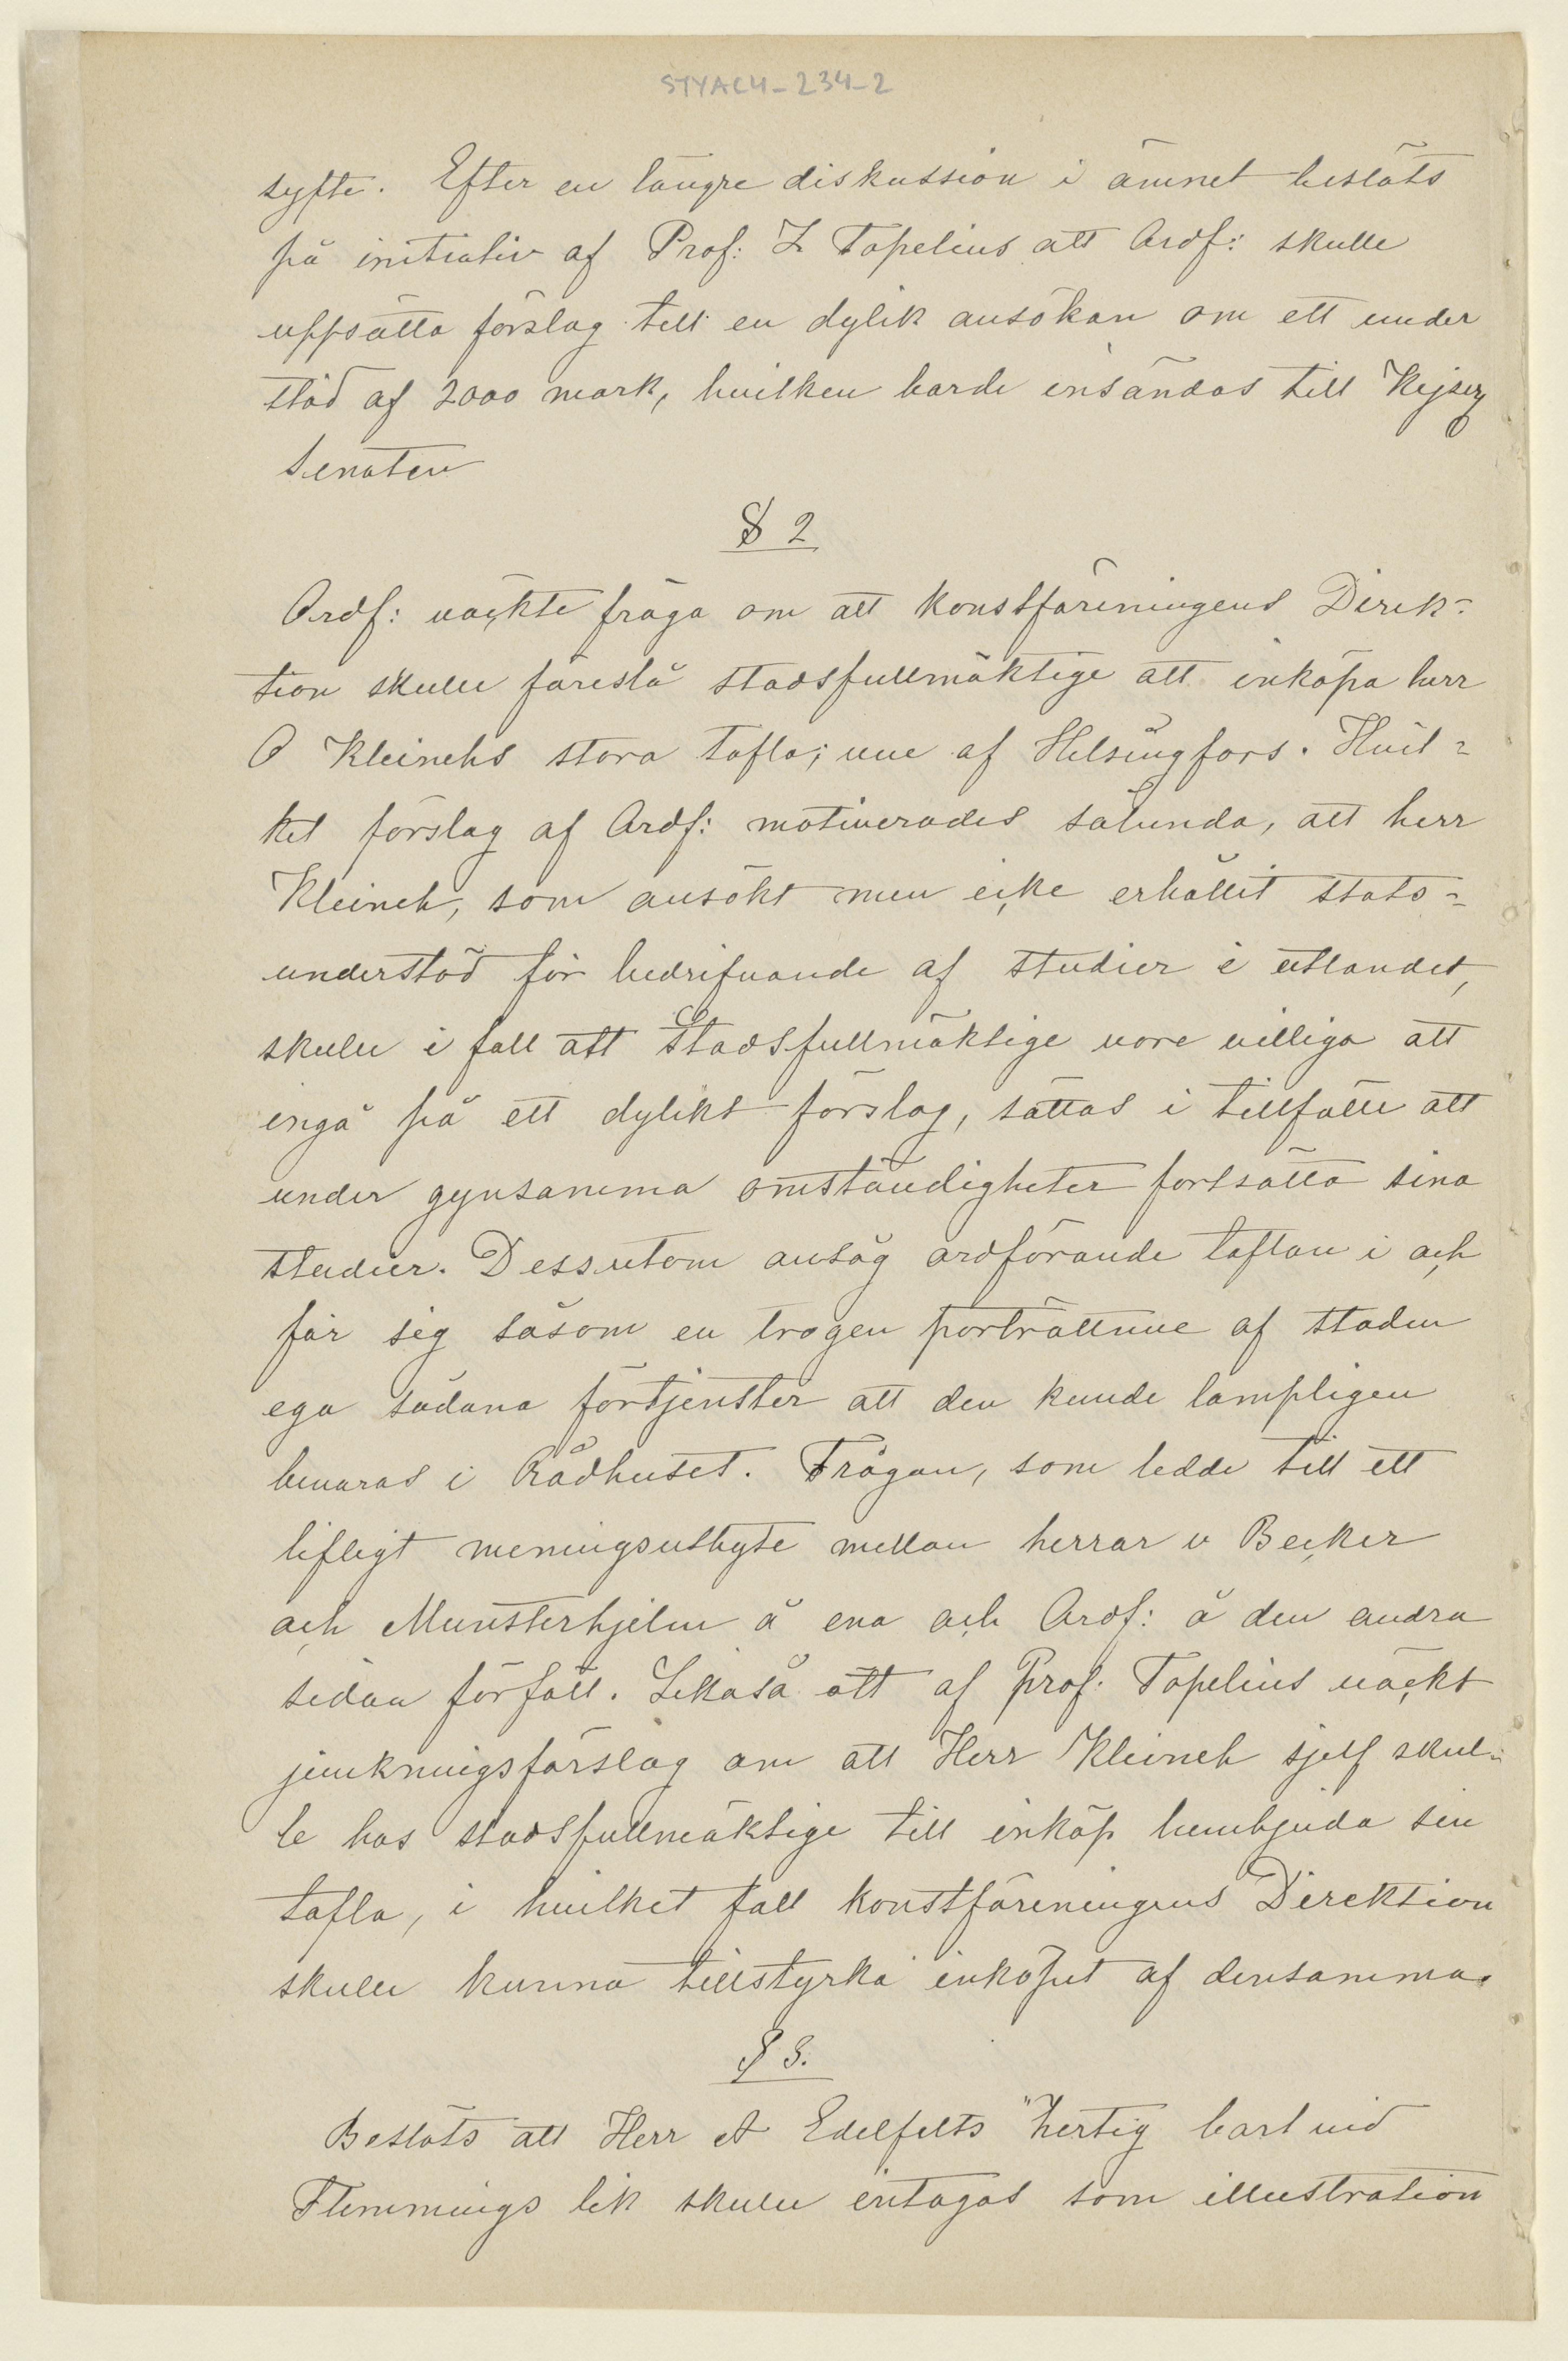 STYACH-234-2
syfte. Efter en längre diskussion i ämnet beslöts
på initiativ af Prof: Z Topelius att Ordf: skulle
uppsätta förslag till en dylik ansökan om ett under
stöd af 2000 mark, hvilken borde insändas till Kejserl
Senaten
§ 2
Ordf: väckte fråga om att Konstföreningens Direk=
tion skulle föreslå stadsfullmäktige att inköpa herr
O Kleinehs stora tafla; vue af Helsingfors. Hvil=
ket förslag af Ordf: motiverades sålunda, att herr
Kleineh, som ansökt men icke erhållit stats=
understöd för bedrifvande af studier i utlandet,
skulle i fall att Stadsfullmäktige vore villiga att
ingå på ett dylikt förslag, sättas i tillfälle att
under gynsamma omständigheter fortsätta sina
studier. Dessutom ansåg ordförande taflan i och
för sig såsom en trogen porträttvue af staden
ega sådana förtjenster att den kunde lämpligen
bevaras i Rådhuset. Frågan, som ledde till ett
lifligt meningsutbyte mellan herrar v Becker
och Munsterhjelm å ena och Ordf: å den andra
sidan förföll. Likaså ått af Prof: Topelius väckt
jemkningsförslag om att Herr Kleineh sjelf skul=
le hos stadsfullmäktige till inköp hembjuda sin
tafla, i hvilket fall Konstföreningens Direktion
skulle kunna tillstyrka inköpet af densamma.
§ 3.
Beslöts att Herr A Edelfelts "hertig Carl vid
Flemmings lik skulle intagas som illustration